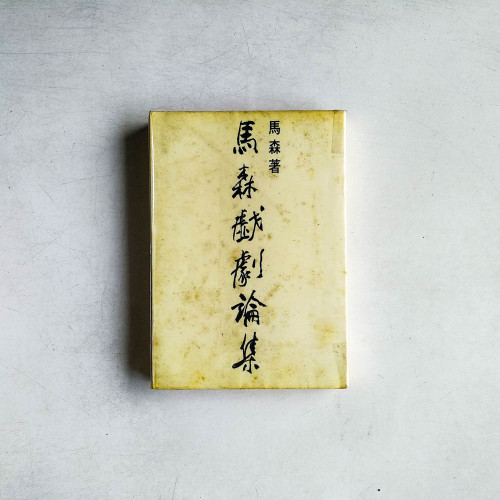 馬森著
馬森戲劇論集